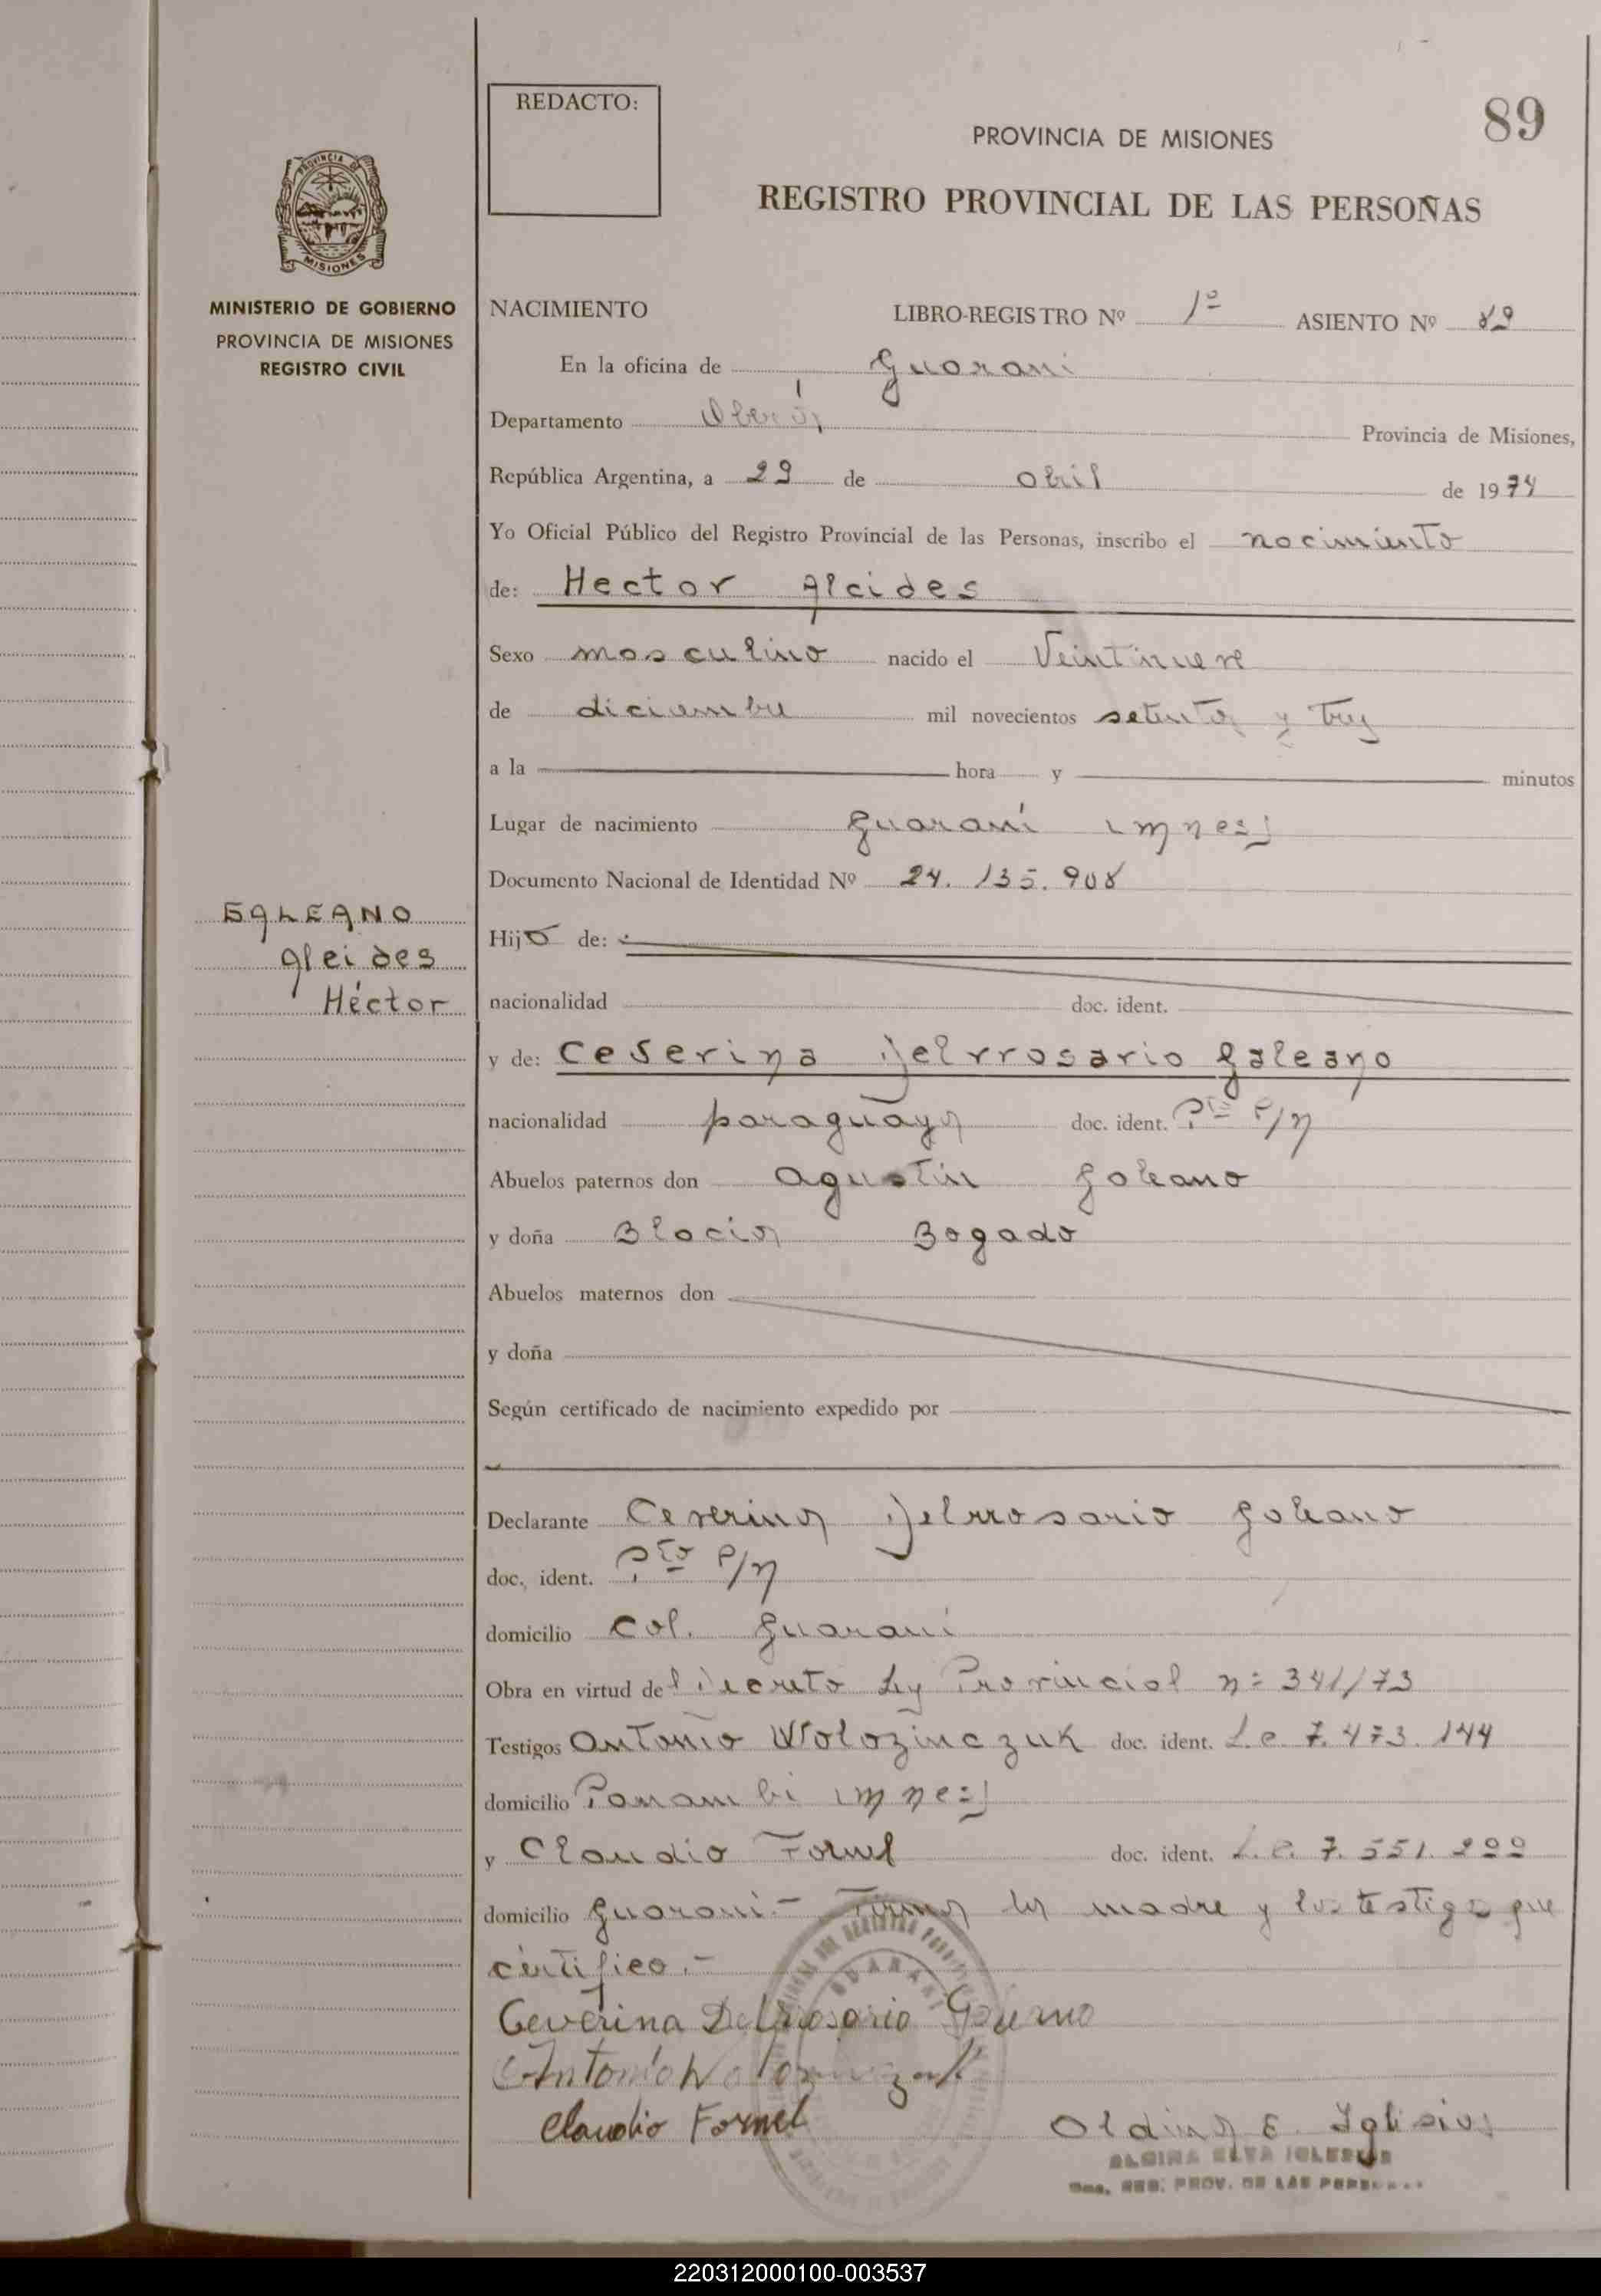 REDACTO:
89
PROVINCIA DE MISIONES
REGISTRO PROVINCIAL DE LAS PERSOÑAS
PROVINCIA DE
MISIONES
MINISTERIO DE GOBIERNO
PROVINCIA DE MISIONES
REGISTRO CIVIL
NACIMIENTO LIBRO-REGISTRO Nº 1º ASIENTO Nº 89
En la oficina de Guarani
Departamento Oberá Provincia de Misiones,
República Argentina, a 29 de abril de 1974
Yo Oficial Público del Registro Provincial de las Personas, inscribo el nacimiento
de: Hector Alcides
Sexo masculino nacido el Veintinueve
de diciembre mil novecientos setenta y tres
a la hora y minutos
Lugar de nacimiento Guaraní (Mnes)
Documento Nacional de Identidad Nº 24.135.908
GALEANO
Alcides
Héctor
Hijo de:
nacionalidad doc. ident.
y de: Ceserina Delrrosario Galeano
nacionalidad paraguaya doc. ident. Pto P/N
Abuelos paternos don Agustin Galeano
y doña Blacia Bogado
Abuelos maternos don
y doña
Según certificado de nacimiento expedido por
Declarante Ceverina Delrrosario Galeano
doc. ident. Pto P/N
domicilio Col. Guarani
Obra en virtud del Decreto Ley Provincial n= 341/73
Testigos Antonio Wolozinczuk doc. ident. L.e. 7.473.144
domicilio Panambi (Mnes)
y Claudio Fornel doc. ident. L.e. 7.551.299
domicilio Guarani.- Firma la madre y los testigos que
certifico.-
Ceverina Delrrosario
Antonio
Claudio Fornel
Oldina E. Iglesias
ALDINA ELVA IGLESIAS
REG. PROV. DE LAS
GUARANI
220312000100-003537